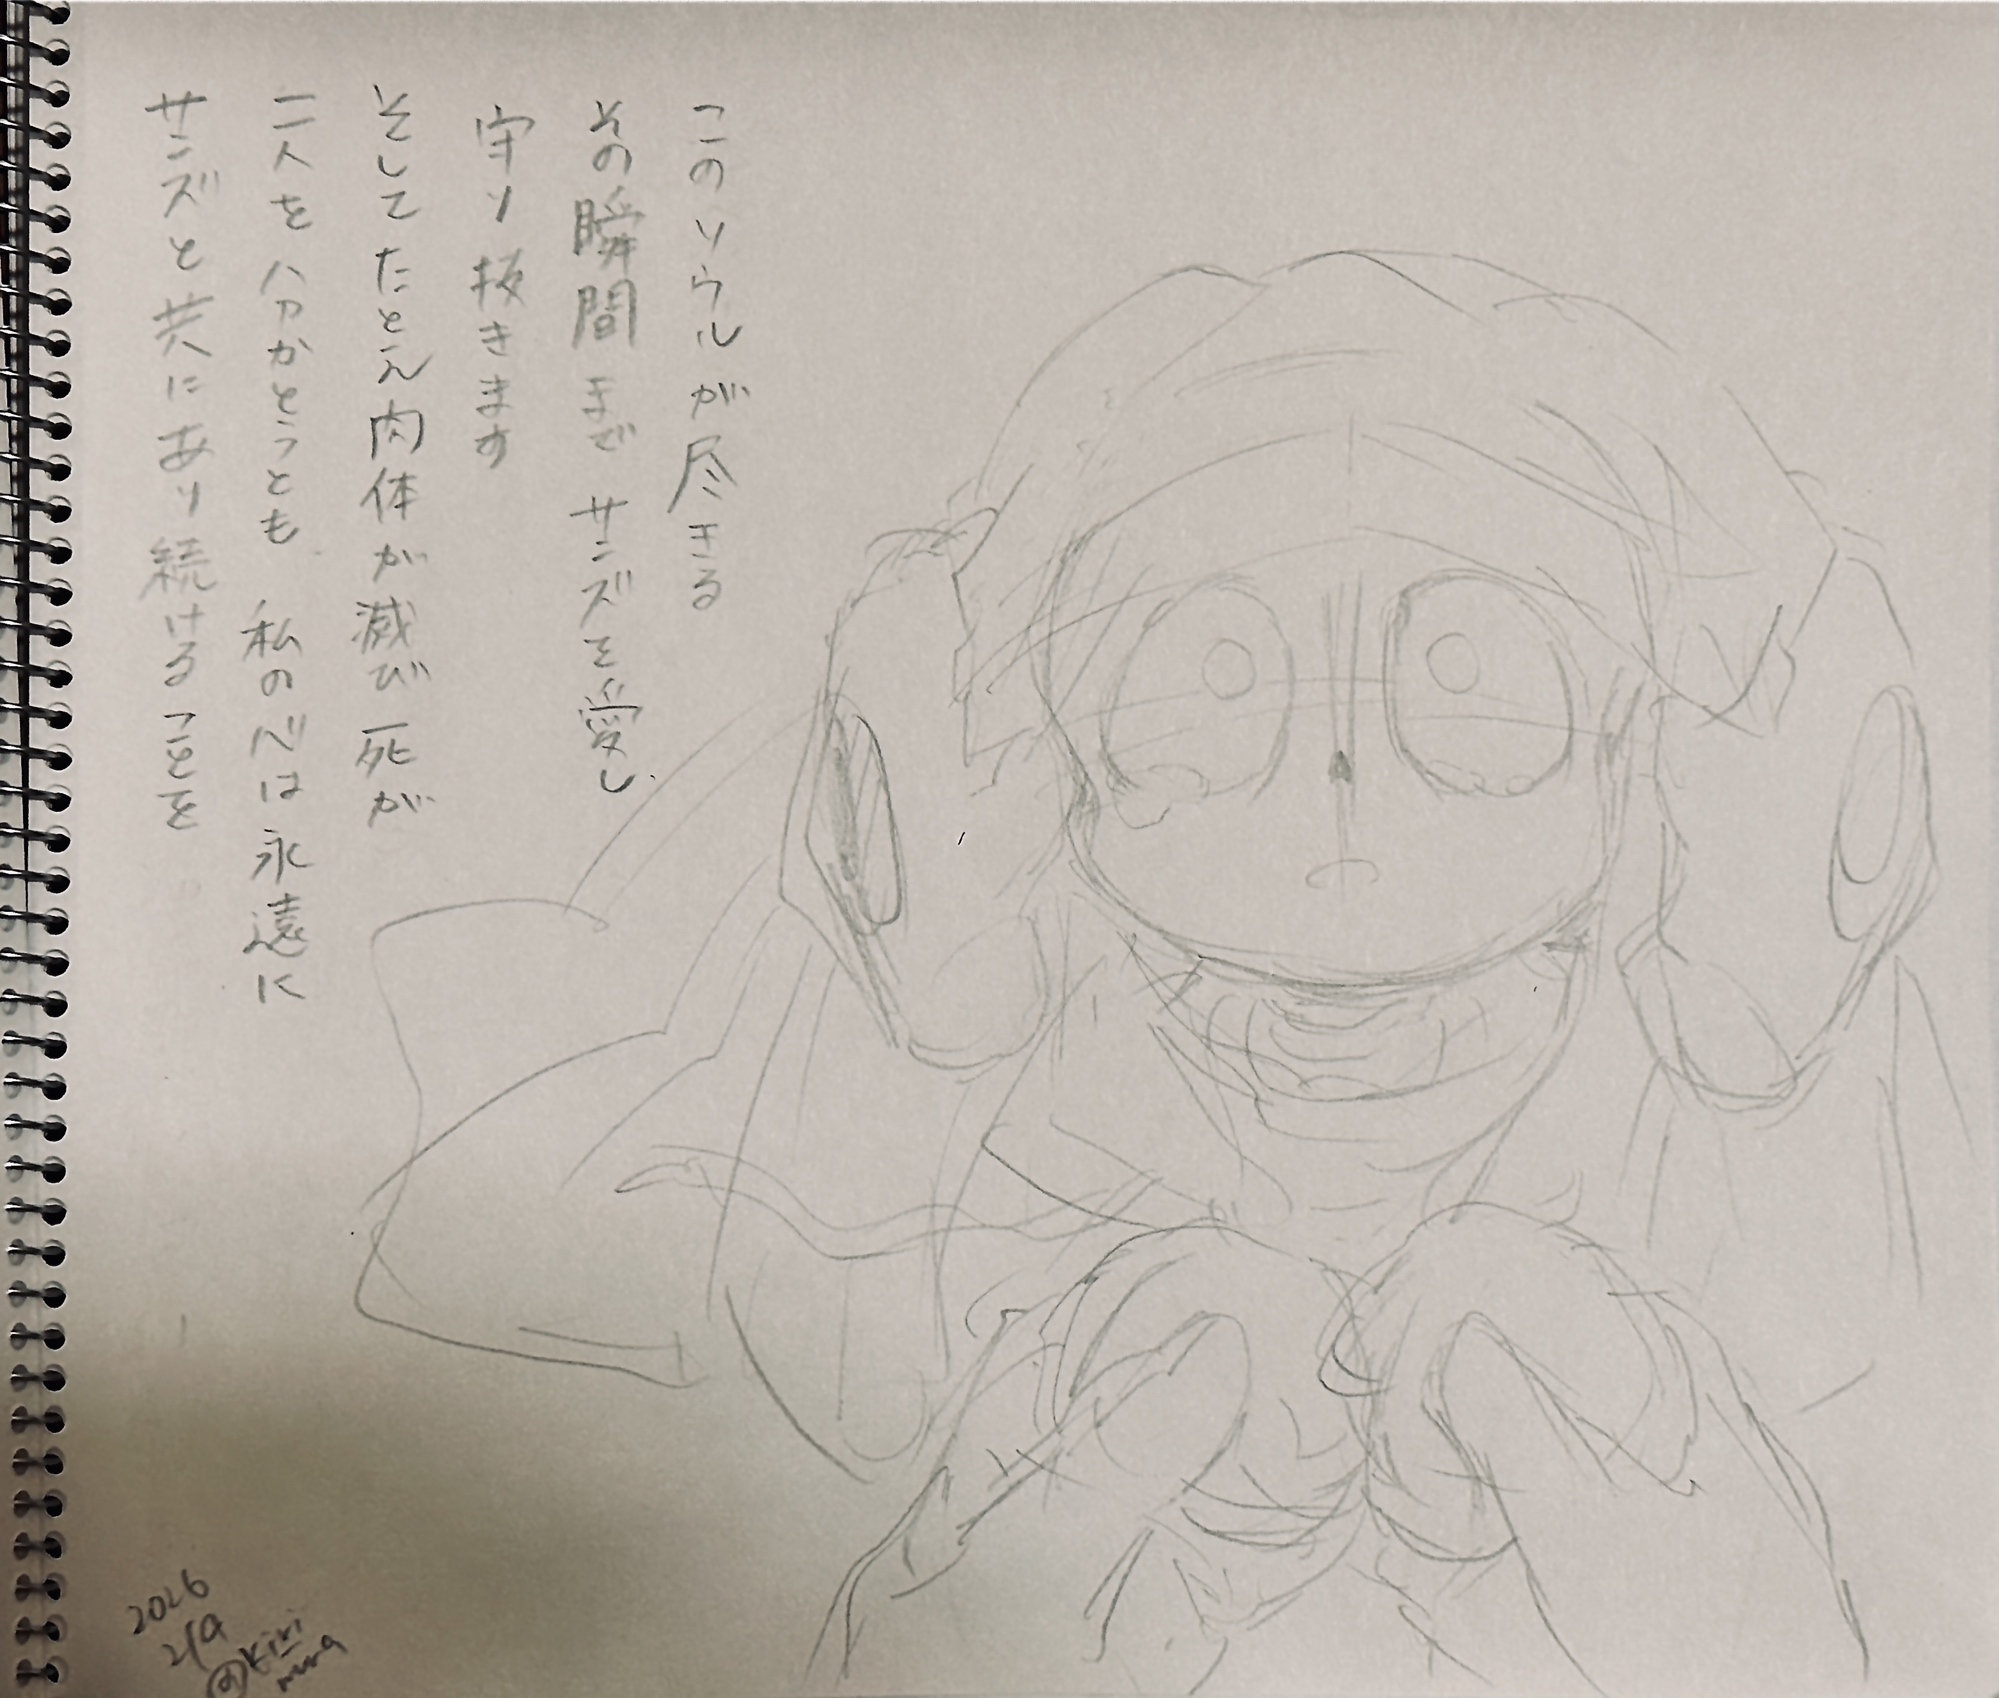 このソウルが尽きる
その瞬間まで サンズを愛し
守り抜きます
そしてたとえ肉体が滅び死が
二人を分かとうとも 私の心は永遠に
サンズと共にあり続けることを
2026
2/9
@kiri